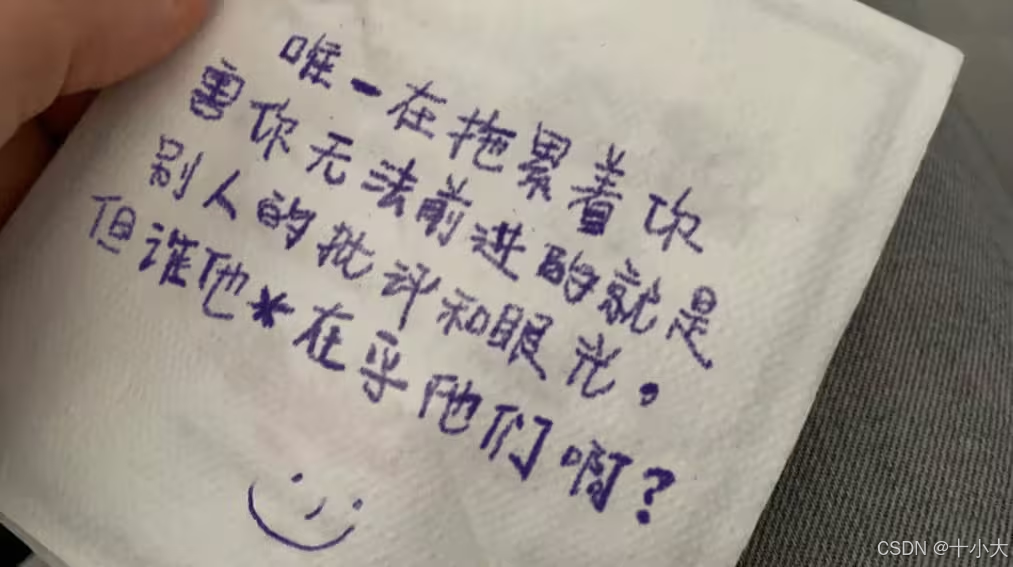 唯一在拖累着你
害你无法前进的就是
别人的批评和眼光。
但谁他*在乎他们啊?
CSDN @十小大